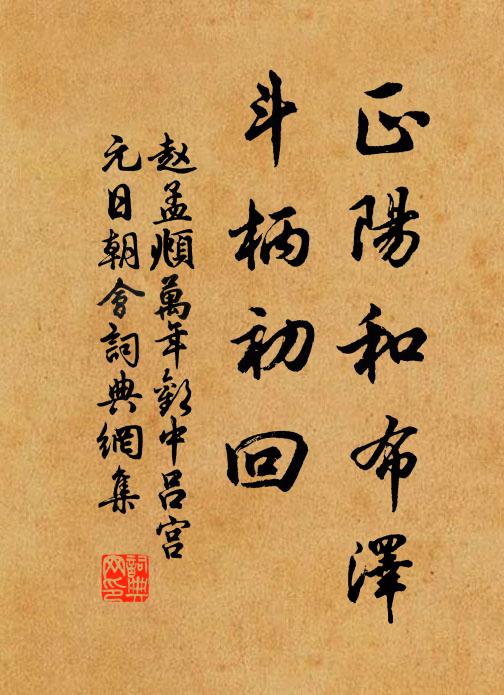 正陽和布澤
斗柄初回
赵孟頫萬年歡中呂宫
元日朝會詞典網集
詞典网印